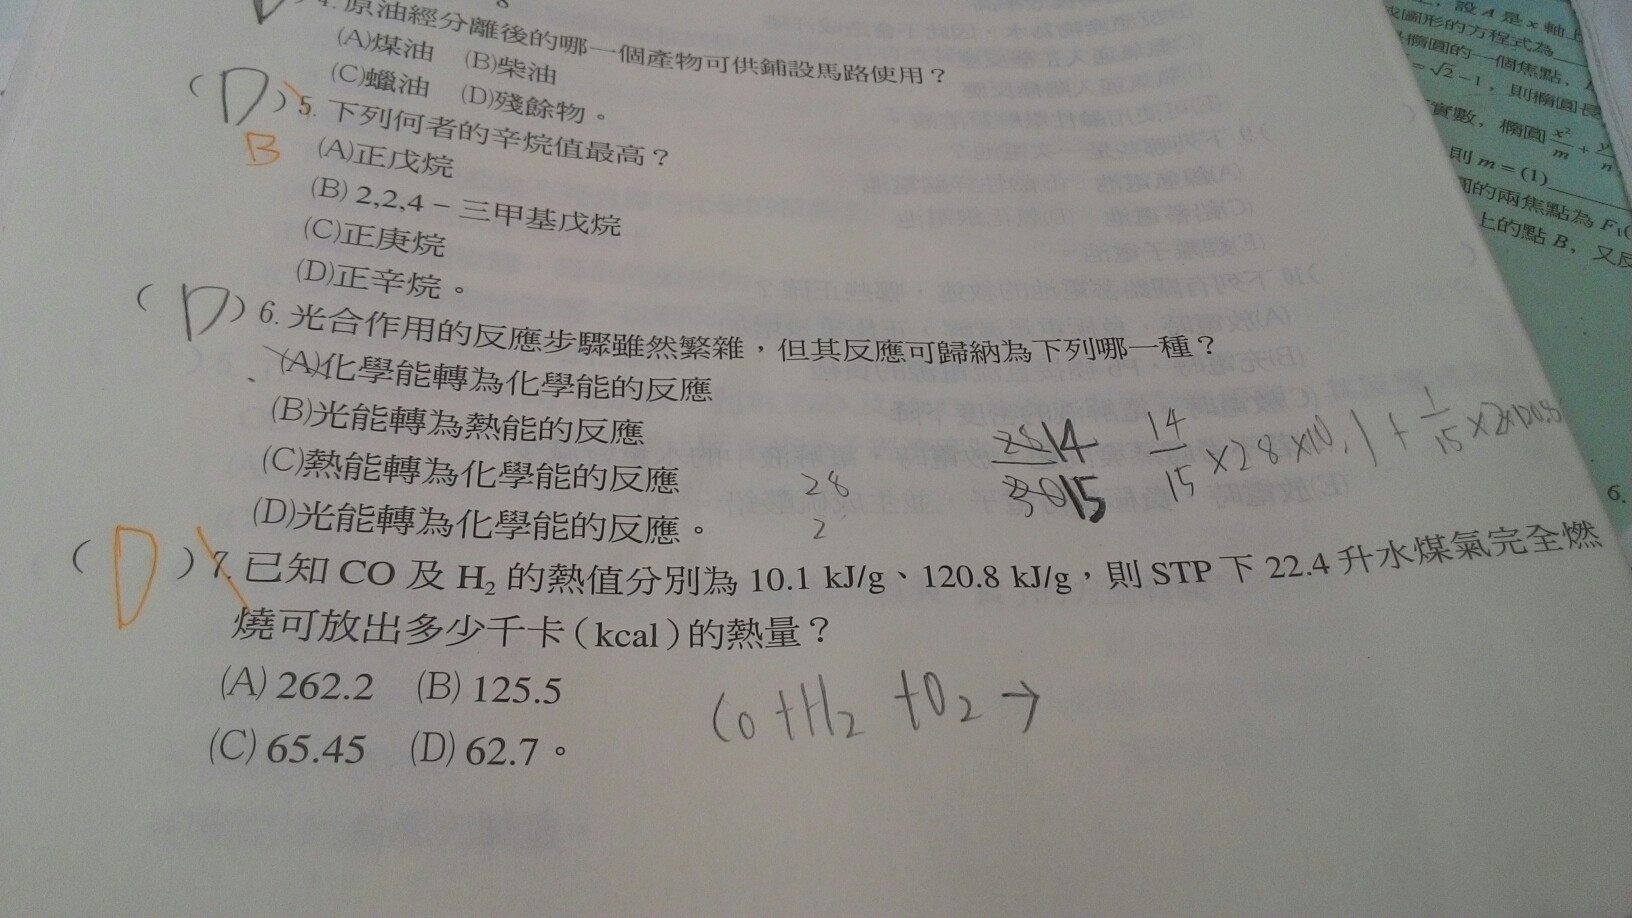 4. 原油經分離後的哪一個產物可供鋪設馬路使用？
(A)煤油 (B)柴油
(C)蠟油 (D)殘餘物。
( D ) 5. 下列何者的辛烷值最高？
B
(A)正戊烷
(B) 2,2,4－三甲基戊烷
(C)正庚烷
(D)正辛烷。
( D ) 6. 光合作用的反應步驟雖然繁雜，但其反應可歸納為下列哪一種？
(A)化學能轉為化學能的反應
(B)光能轉為熱能的反應
(C)熱能轉為化學能的反應
(D)光能轉為化學能的反應。
28
2
28 14
30 15
14/15 × 28 × 10.1 + 1/15 × 2 × 120.8
( D ) 7. 已知 CO 及 H₂ 的熱值分別為 10.1 kJ/g、120.8 kJ/g，則 STP 下 22.4 升水煤氣完全燃
燒可放出多少千卡（kcal）的熱量？
(A) 262.2 (B) 125.5
(C) 65.45 (D) 62.7。
CO + H₂ + O₂ →
設 A 是 x 軸上
圖形的方程式為
橢圓的一個焦點，
= √2 − 1，則橢圓長
實數，橢圓 x²/m +
則 m = (1)
的兩焦點為 F₁(
上的點 B，又反
6.